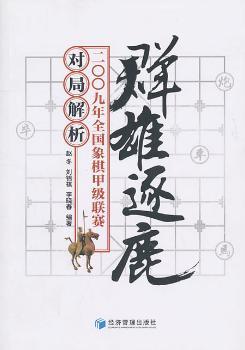 群雄逐鹿
二〇〇九年全国象棋甲级联赛
对局解析
赵冬 刘锦祺 李晓春 编著
炮
車
馬
经济管理出版社